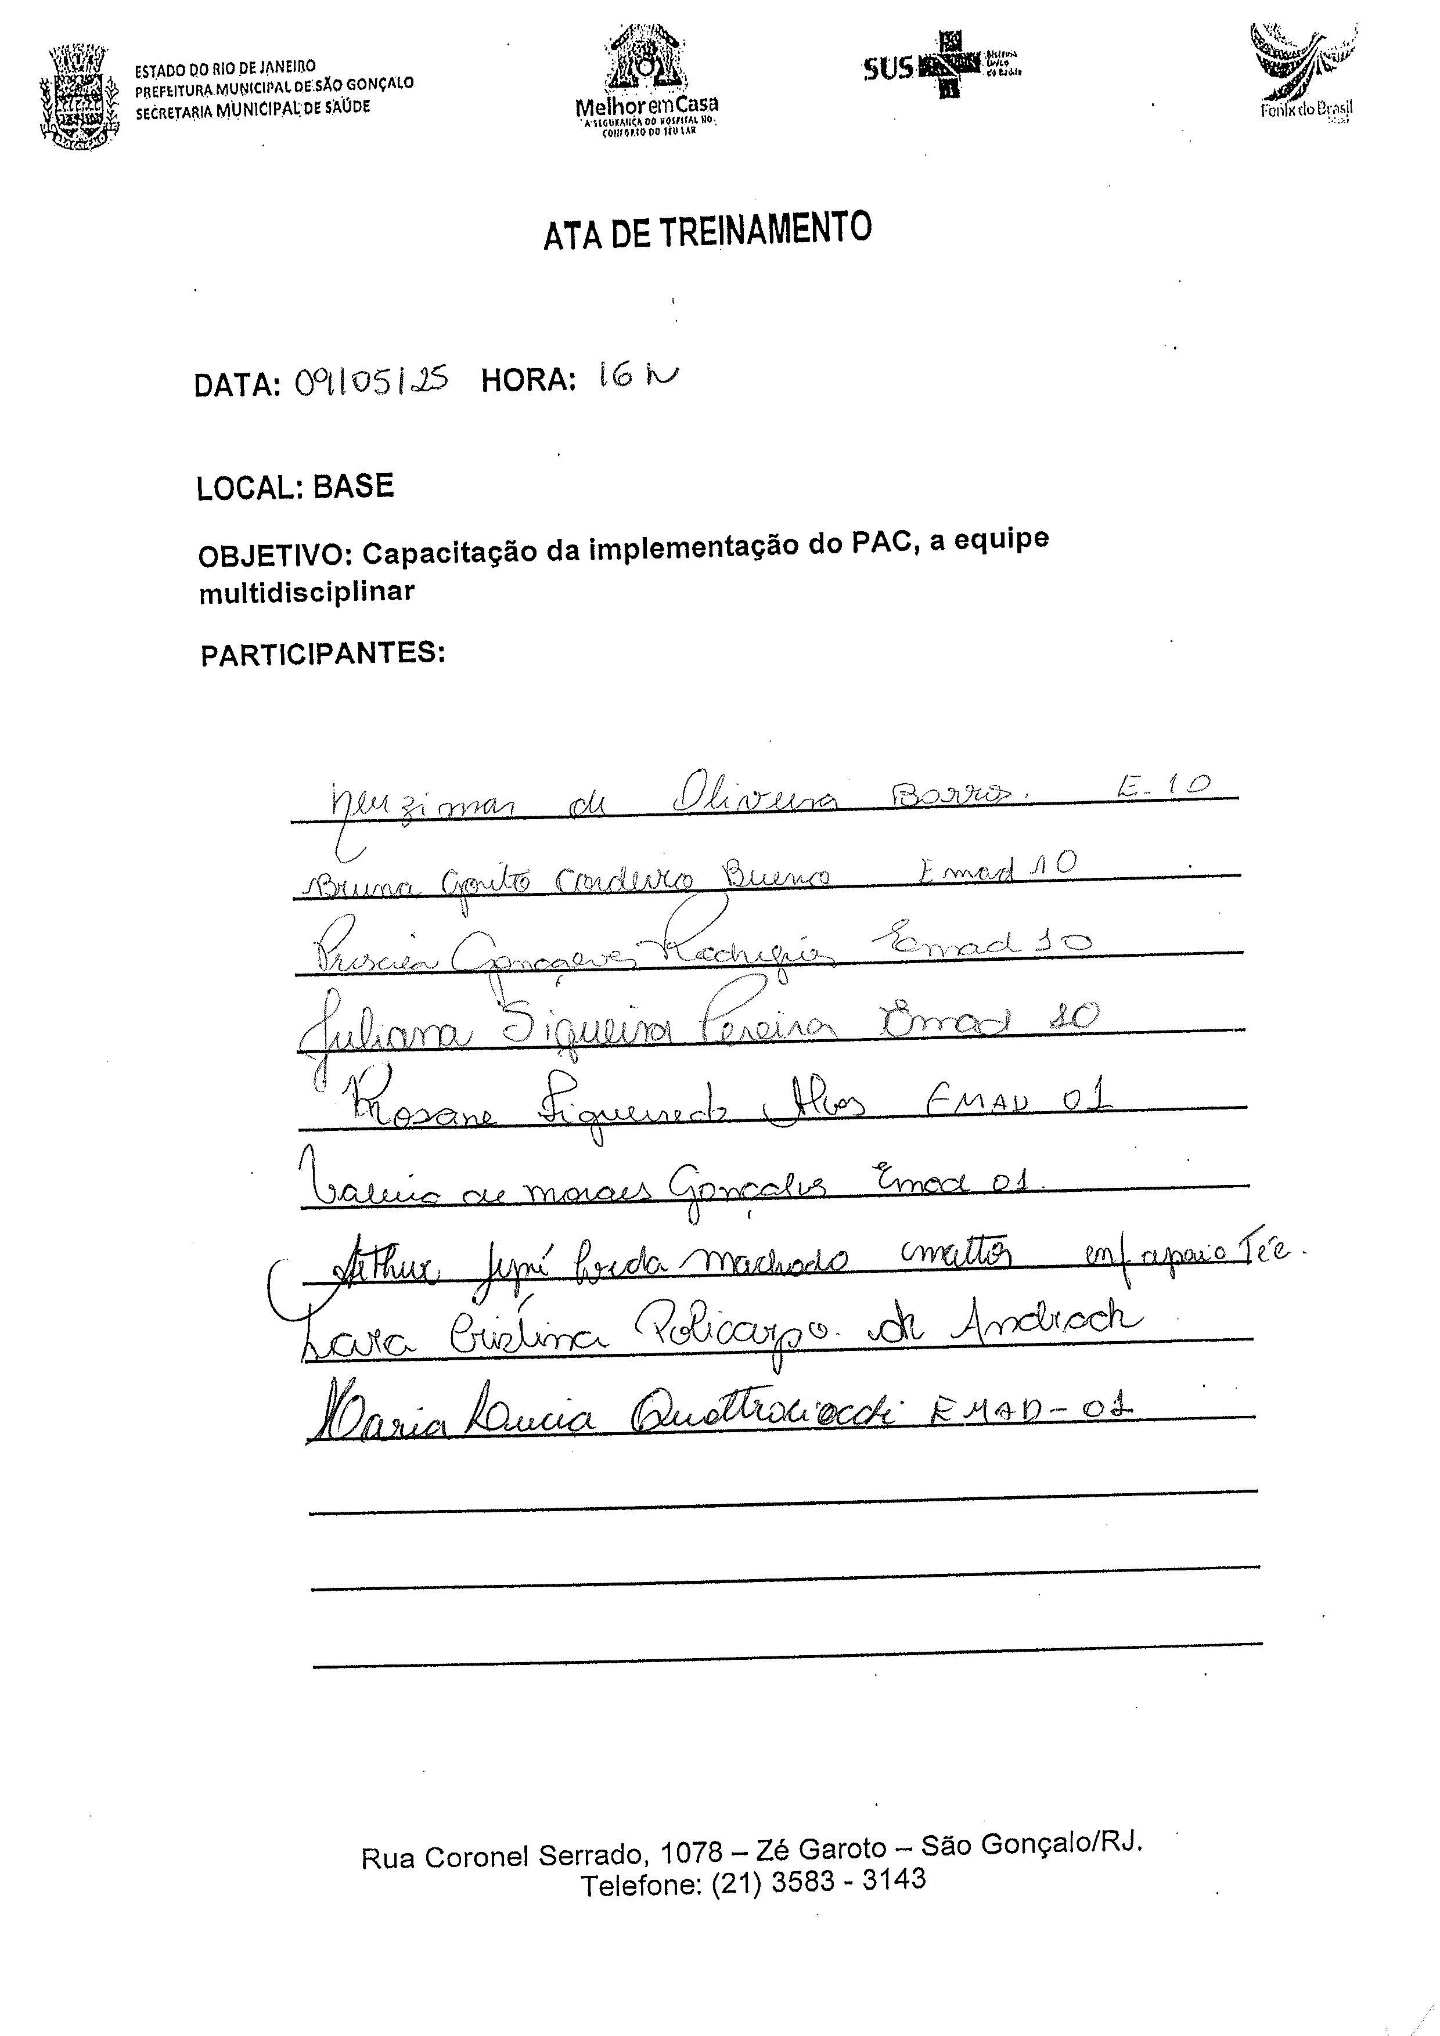 ESTADO DO RIO DE JANEIRO
PREFEITURA MUNICIPAL DE SÃO GONÇALO
SECRETARIA MUNICIPAL DE SAÚDE
Melhor em Casa
A SEGURANÇA DO HOSPITAL NO
CONFORTO DO SEU LAR
SUS
Sistema
Único
de Saúde
Fenix do Brasil
ATA DE TREINAMENTO
DATA: 09/05/25 HORA: 16 h
LOCAL: BASE
OBJETIVO: Capacitação da implementação do PAC, a equipe
multidisciplinar
PARTICIPANTES:
Neuzimar de Oliveira Barros. E-10
Bruna Couto Cordeiro Bueno Emad 10
Priscila Gonçalves Rodrigues Emad 10
Juliana Siqueira Pereira Emad 10
Rosane Figueiredo Alves EMAD 01
Valeria de Moraes Gonçalves Emad 01
Arthur Machado enf apoio Téc.
Lara Cristina Policarpo de Andrade
Maria Lucia Quattrociocchi EMAD-01
Rua Coronel Serrado, 1078 – Zé Garoto – São Gonçalo/RJ.
Telefone: (21) 3583 - 3143